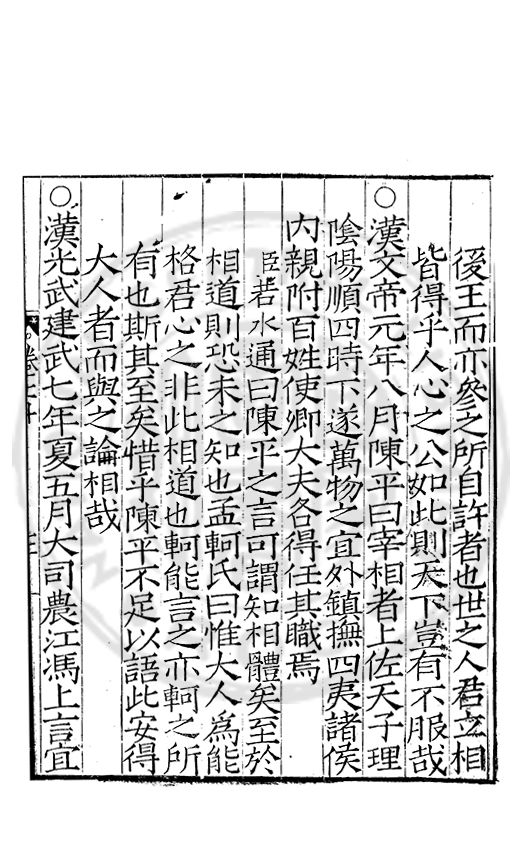 後王而亦參之所自許者也世之人君立相
皆得乎人心之公如此則天下豈有不服哉
○漢文帝元年八月陳平曰宰相者上佐天子理
陰陽順四時下遂萬物之宜外鎮撫四夷諸侯
內親附百姓使卿大夫各得任其職焉
臣若水通曰陳平之言可謂知相體矣至於
相道則恐未之知也孟軻氏曰惟大人爲能
格君心之非此相道也軻能言之亦軻之所
有也斯其至矣惜乎陳平不足以語此安得
大人者而與之論相哉
○漢光武建武七年夏五月大司農江馮上言宜